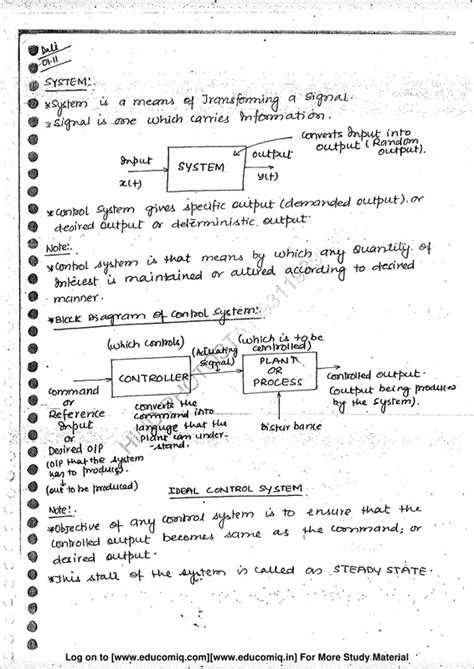 Date
01-11
SYSTEM:
* System is a means of Transforming a Signal.
* Signal is one which carries Information.
converts Input into
output (Random
output).
Input
x(t)
SYSTEM
output
y(t)
* Control System gives specific output (demanded output), or
desired output or deterministic output.
Note:
* Control system is that means by which any Quantity of
Interest is maintained or altered according to desired
manner.
* Block Diagram of Control System:
(which controls)
(Actuating
Signal)
(which is to be
controlled)
CONTROLLER
PLANT
OR
PROCESS
Controlled output
(output being produced
by the System).
Command
or
Reference
Input
or
Desired O/P
(O/P that the system
has to produce)
(out to be produced)
converts the
command into
languge that the
Plant can under-
stand.
Disturbance
IDEAL CONTROL SYSTEM
Note!
* Objective of any control system is to ensure that the
controlled output becomes same as the command, or
desired output.
* This state of the system is called as STEADY STATE.
Log on to [www.educomiq.com][www.educomiq.in] For More Study Material